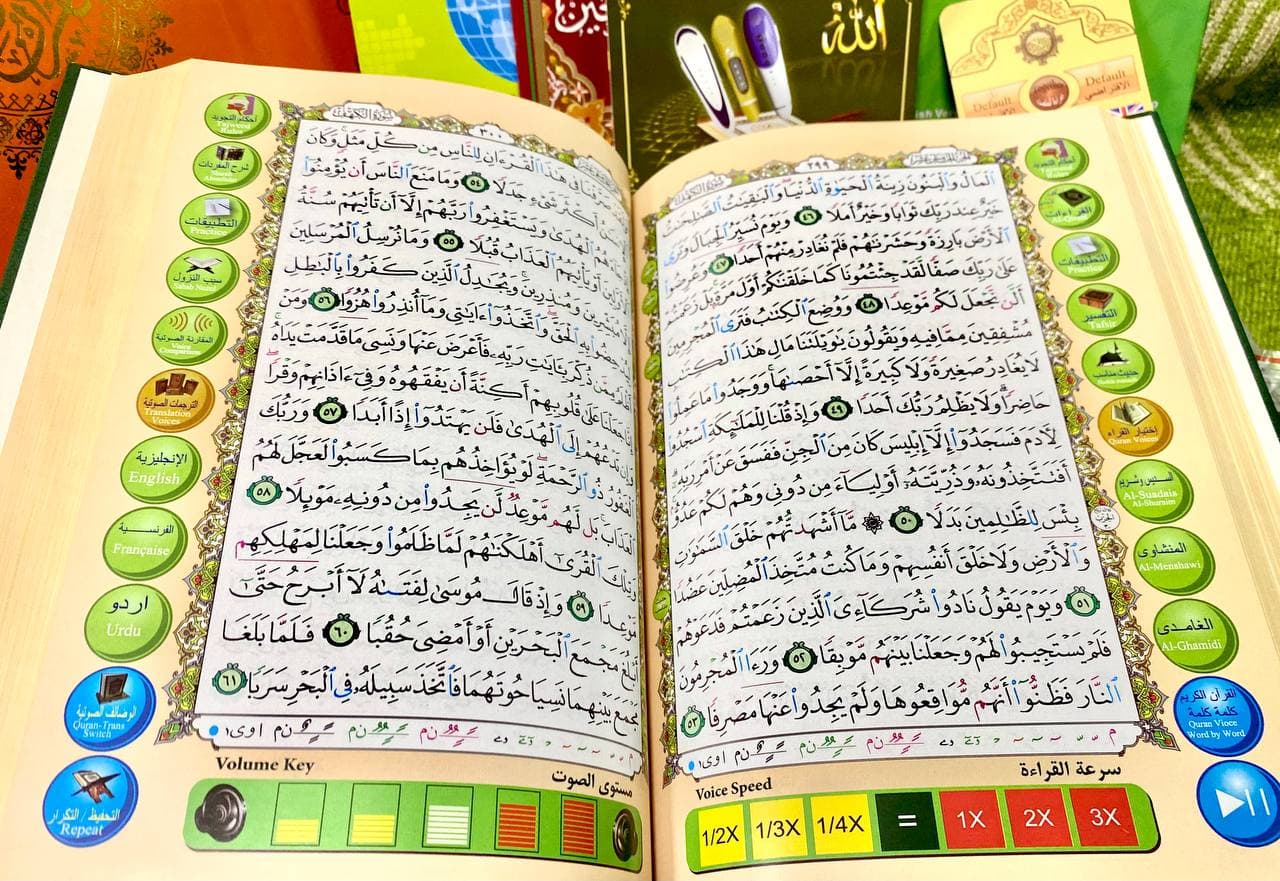 الله
Default
Default
الافتراضي
سُورَةُ الْكَهْفِ
٢٩٩
الْمَالُ وَالْبَنُونَ زِينَةُ الْحَيَوٰةِ الدُّنْيَا وَالْبَٰقِيَٰتُ الصَّٰلِحَٰتُ
خَيْرٌ عِندَ رَبِّكَ ثَوَابًا وَخَيْرٌ أَمَلًا ٤٦ وَيَوْمَ نُسَيِّرُ الْجِبَالَ وَتَرَى
الْأَرْضَ بَارِزَةً وَحَشَرْنَٰهُمْ فَلَمْ نُغَادِرْ مِنْهُمْ أَحَدًا ٤٧ وَعُرِضُوا
عَلَىٰ رَبِّكَ صَفًّا لَّقَدْ جِئْتُمُونَا كَمَا خَلَقْنَٰكُمْ أَوَّلَ مَرَّةٍ بَلْ زَعَمْتُمْ
أَلَّن نَّجْعَلَ لَكُم مَّوْعِدًا ٤٨ وَوُضِعَ الْكِتَٰبُ فَتَرَى الْمُجْرِمِينَ
مُشْفِقِينَ مِمَّا فِيهِ وَيَقُولُونَ يَٰوَيْلَتَنَا مَالِ هَٰذَا الْكِتَٰبِ
لَا يُغَادِرُ صَغِيرَةً وَلَا كَبِيرَةً إِلَّا أَحْصَىٰهَا وَوَجَدُوا مَا عَمِلُوا
حَاضِرًا وَلَا يَظْلِمُ رَبُّكَ أَحَدًا ٤٩ وَإِذْ قُلْنَا لِلْمَلَٰئِكَةِ اسْجُدُوا
لِأَدَمَ فَسَجَدُوا إِلَّا إِبْلِيسَ كَانَ مِنَ الْجِنِّ فَفَسَقَ عَنْ أَمْرِ رَبِّهِ
أَفَتَتَّخِذُونَهُ وَذُرِّيَّتَهُ أَوْلِيَاءَ مِن دُونِي وَهُمْ لَكُمْ عَدُوٌّ
بِئْسَ لِلظَّٰلِمِينَ بَدَلًا ٥٠ ۞ مَّا أَشْهَدتُّهُمْ خَلْقَ السَّمَٰوَٰتِ
وَالْأَرْضِ وَلَا خَلْقَ أَنفُسِهِمْ وَمَا كُنتُ مُتَّخِذَ الْمُضِلِّينَ عَضُدًا
٥١ وَيَوْمَ يَقُولُ نَادُوا شُرَكَاءِيَ الَّذِينَ زَعَمْتُمْ فَدَعَوْهُمْ
فَلَمْ يَسْتَجِيبُوا لَهُمْ وَجَعَلْنَا بَيْنَهُم مَّوْبِقًا ٥٢ وَرَءَا الْمُجْرِمُونَ
النَّارَ فَظَنُّوا أَنَّهُم مُّوَاقِعُوهَا وَلَمْ يَجِدُوا عَنْهَا مَصْرِفًا ٥٣
أحكام التجويد
القراءات
التطبيقات
Practice
التفسير
Tafsir
حديث مناسب
إختيار القراء
Quran Voices
السديس وشريم
Al-Suadais
Al-Shuraim
المنشاوى
Al-Menshawi
الغامدى
Al-Ghamidi
القرآن الكريم
كلمة كلمة
Quran Vioce
Word by Word
سرعة القراءة
Voice Speed
1/2X 1/3X 1/4X = 1X 2X 3X
سُورَةُ الْكَهْفِ
٣٠٠
فِي هَٰذَا الْقُرْءَانِ لِلنَّاسِ مِن كُلِّ مَثَلٍ وَكَانَ
أَكْثَرَ شَيْءٍ جَدَلًا ٥٤ وَمَا مَنَعَ النَّاسَ أَن يُؤْمِنُوا
الْهُدَىٰ وَيَسْتَغْفِرُوا رَبَّهُمْ إِلَّا أَن تَأْتِيَهُمْ سُنَّةُ
أَوْ يَأْتِيَهُمُ الْعَذَابُ قُبُلًا ٥٥ وَمَا نُرْسِلُ الْمُرْسَلِينَ
وَمُنذِرِينَ وَيُجَٰدِلُ الَّذِينَ كَفَرُوا بِالْبَٰطِلِ
بِهِ الْحَقَّ وَاتَّخَذُوا ءَايَٰتِي وَمَا أُنذِرُوا هُزُوًا ٥٦ وَمَنْ
مِمَّن ذُكِّرَ بِـَٔايَٰتِ رَبِّهِ فَأَعْرَضَ عَنْهَا وَنَسِيَ مَا قَدَّمَتْ يَدَاهُ
إِنَّا جَعَلْنَا عَلَىٰ قُلُوبِهِمْ أَكِنَّةً أَن يَفْقَهُوهُ وَفِي ءَاذَانِهِمْ وَقْرًا
وَإِن تَدْعُهُمْ إِلَى الْهُدَىٰ فَلَن يَهْتَدُوا إِذًا أَبَدًا ٥٧ وَرَبُّكَ
الْغَفُورُ ذُو الرَّحْمَةِ لَوْ يُؤَاخِذُهُم بِمَا كَسَبُوا لَعَجَّلَ لَهُمُ
الْعَذَابَ بَل لَّهُم مَّوْعِدٌ لَّن يَجِدُوا مِن دُونِهِ مَوْئِلًا ٥٨
وَتِلْكَ الْقُرَىٰ أَهْلَكْنَٰهُمْ لَمَّا ظَلَمُوا وَجَعَلْنَا لِمَهْلِكِهِم
مَّوْعِدًا ٥٩ وَإِذْ قَالَ مُوسَىٰ لِفَتَىٰهُ لَا أَبْرَحُ حَتَّىٰ
أَبْلُغَ مَجْمَعَ الْبَحْرَيْنِ أَوْ أَمْضِيَ حُقُبًا ٦٠ فَلَمَّا بَلَغَا
مَجْمَعَ بَيْنِهِمَا نَسِيَا حُوتَهُمَا فَاتَّخَذَ سَبِيلَهُ فِي الْبَحْرِ سَرَبًا ٦١
أحكام التجويد
Tajweed
Rules
شرح المفردات
التطبيقات
Practice
سبب النزول
Sabab Nuzul
المقارنة الصوتية
Voice
Comparison
الترجمات الصوتية
Translation
Voices
الإنجليزية
English
الفرنسية
Française
اردو
Urdu
الوصائف الصوتية
Quran-Trans
Switch
التحفيظ / التكرار
Repeat
Volume Key
مستوى الصوت